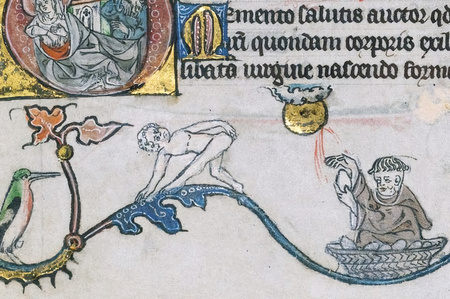 Memento salutis auctor qd
nr̄i quondam corporis ex il
libata uirgine nascendo forme